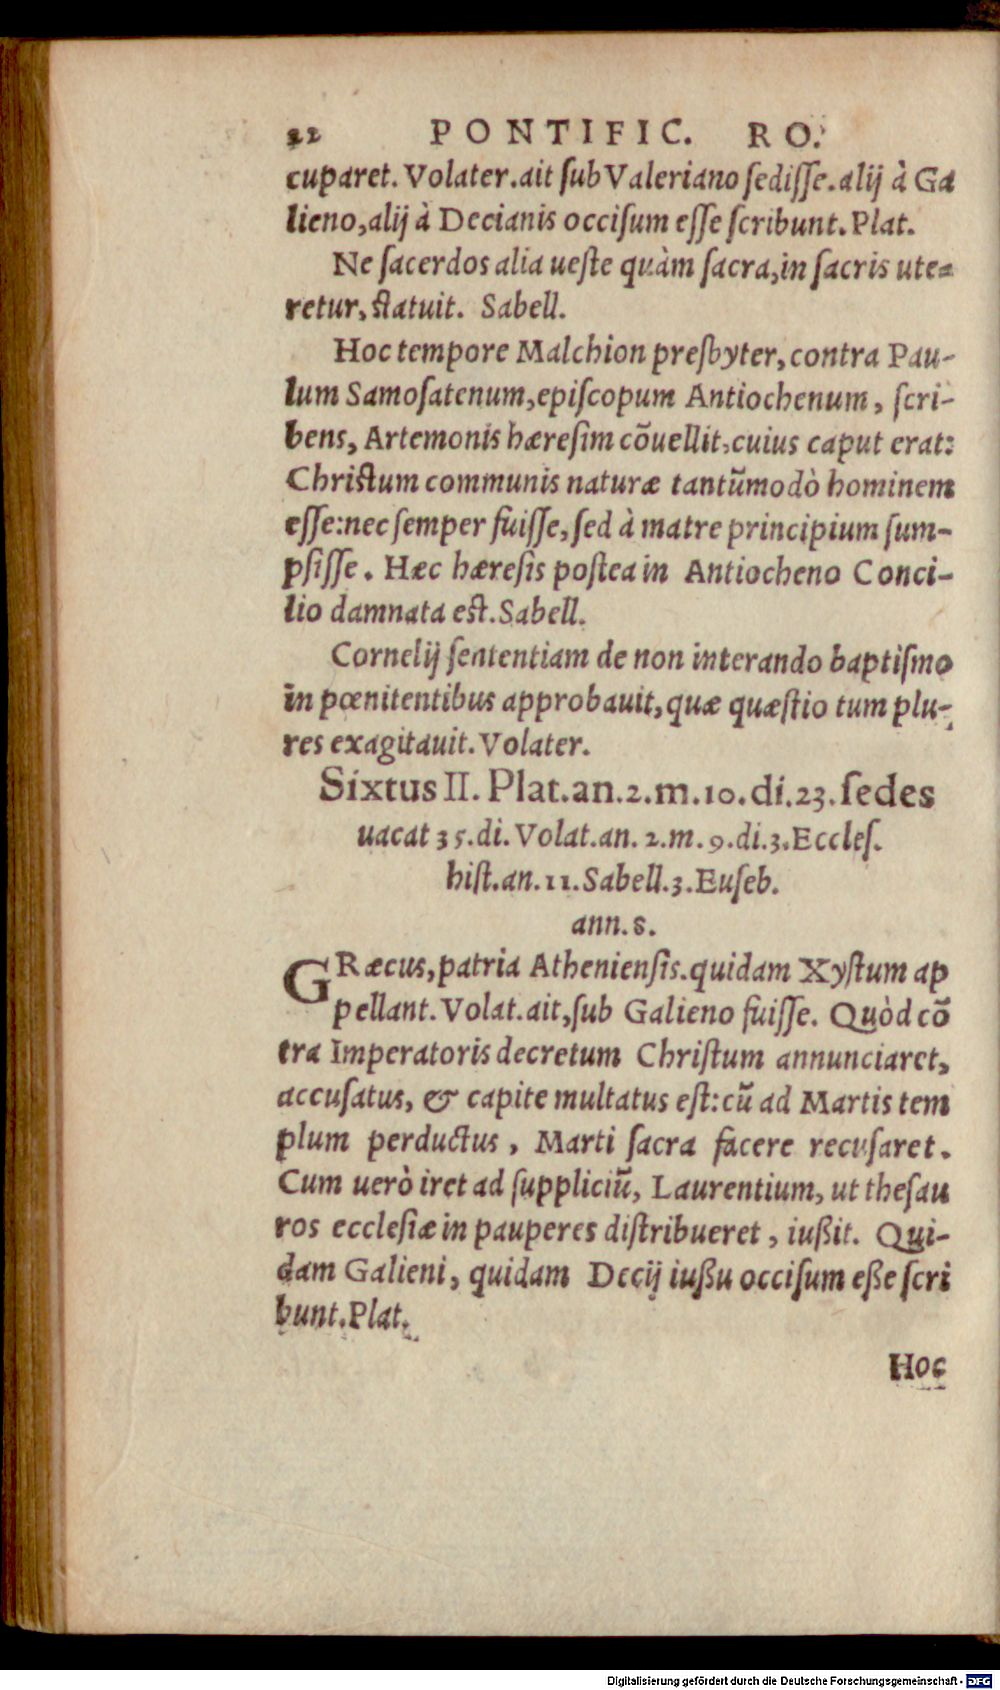 22 PONTIFIC. RO.
cuparet. Volater.ait ſub Valeriano ſediſſe.alij à Ga
lieno,alij à Decianis occiſum eſſe ſcribunt.Plat.
Ne ſacerdos alia ueſte quàm ſacra,in ſacris ute=
retur, ſtatuit. Sabell.
Hoc tempore Malchion presbyter, contra Pau-
lum Samoſatenum,epiſcopum Antiochenum, ſcri-
bens, Artemonis hæreſim cõuellit,cuius caput erat:
Chriſtum communis naturæ tantũmodò hominem
eſſe:nec ſemper fuiſſe, ſed à matre principium ſum-
pſiſſe. Hæc hæreſis poſtea in Antiocheno Conci-
lio damnata eſt.Sabell.
Cornelij ſententiam de non interando baptiſmo
in pœnitentibus approbauit,quæ quæſtio tum plu-
res exagitauit. Volater.
Sixtus II. Plat.an.2.m.10.di.23.ſedes
uacat 35.di. Volat.an. 2.m. 9.di.3.Eccleſ.
hiſt.an.11.Sabell.3.Euſeb.
ann.8.
GRæcus,patria Athenienſis.quidam Xyſtum ap
pellant. Volat.ait,ſub Galieno fuiſſe. Quòd cõ
tra Imperatoris decretum Chriſtum annunciaret,
accuſatus, & capite multatus eſt:cũ ad Martis tem
plum perductus, Marti ſacra facere recuſaret.
Cum uerò iret ad ſuppliciũ, Laurentium, ut theſau
ros eccleſiæ in pauperes diſtribueret, iußit. Qui-
dam Galieni, quidam Decij iußu occiſum eße ſcri
bunt.Plat.
Hoc
Digitalisierung gefördert durch die Deutsche Forschungsgemeinschaft - DFG